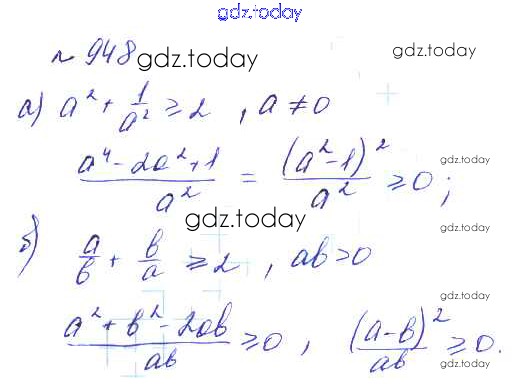 gdz.today
№ 948 gdz.today gdz.today
а) a² + 1/a² ≥ 2 , a ≠ 0
(a⁴ - 2a² + 1)/a² = (a² - 1)²/a² ≥ 0 ; gdz.today
gdz.today gdz.today
б) a/b + b/a ≥ 2 , ab > 0
gdz.today
(a² + b² - 2ab)/ab ≥ 0 , (a - b)²/ab ≥ 0.
gdz.today